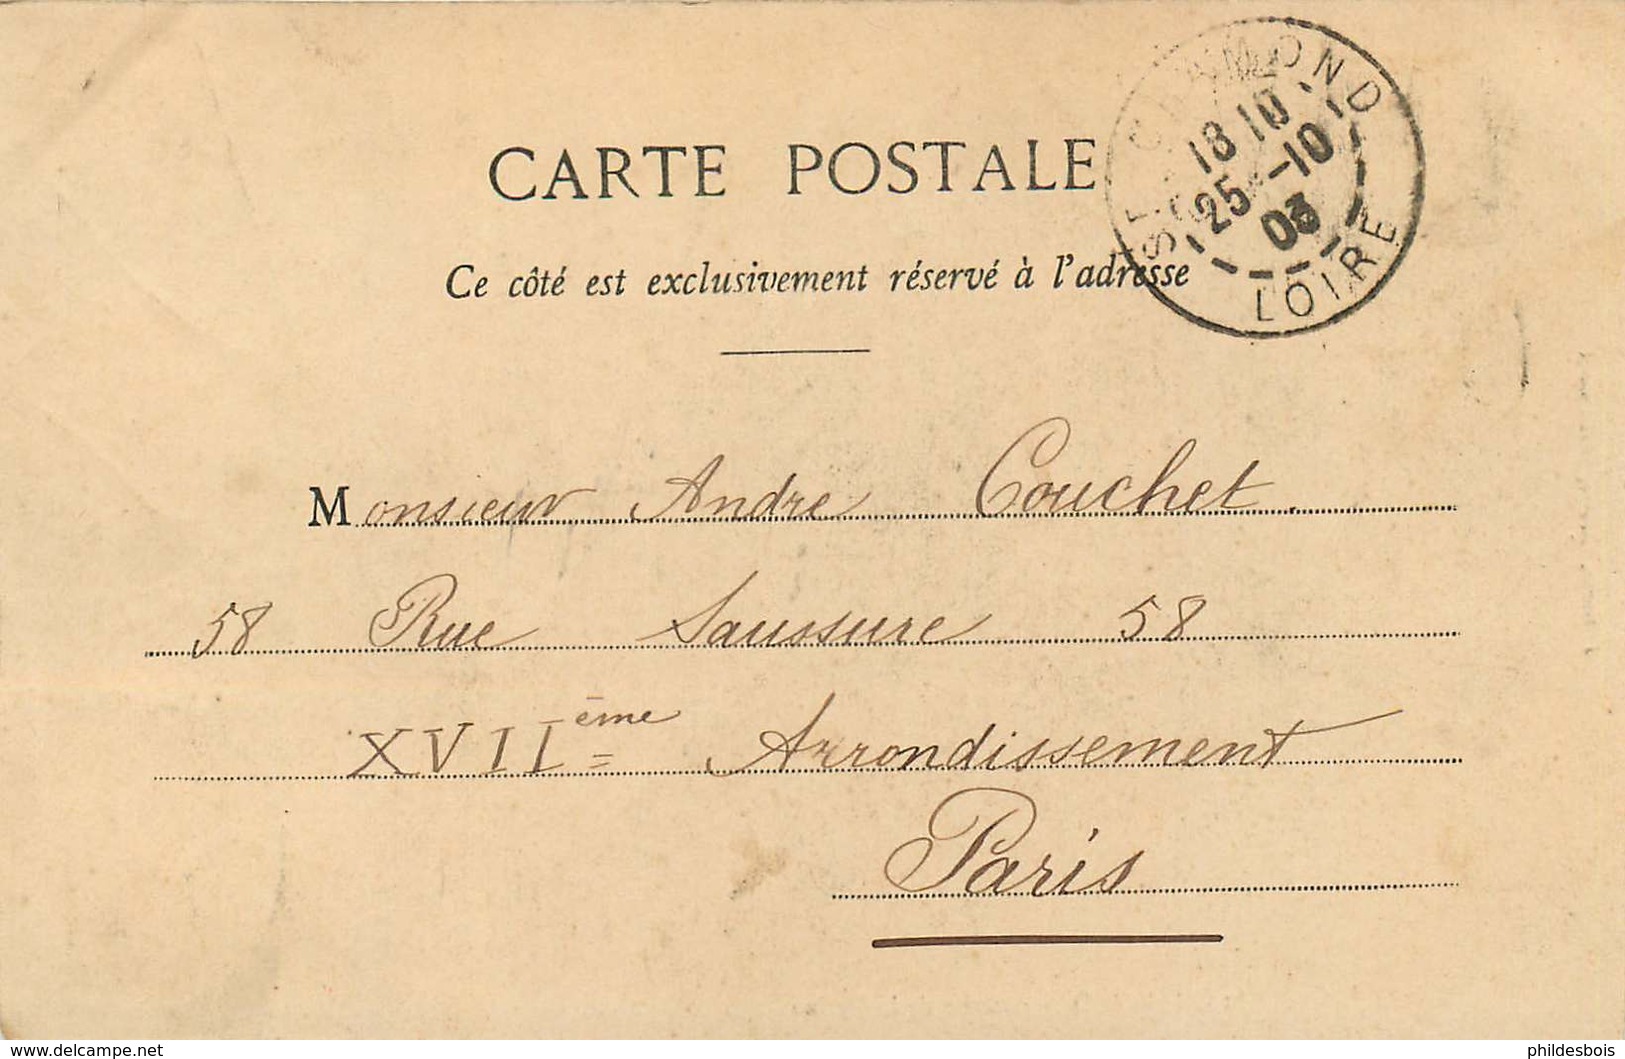 CARTE POSTALE
Ce côté est exclusivement réservé à l'adresse
ST CHAMOND
18 10
25 -10
03
LOIRE
Monsieur Andre Couchet.
58 Rue Saussure 58
XVII ème Arrondissement
Paris
www.delcampe.net
phildesbois